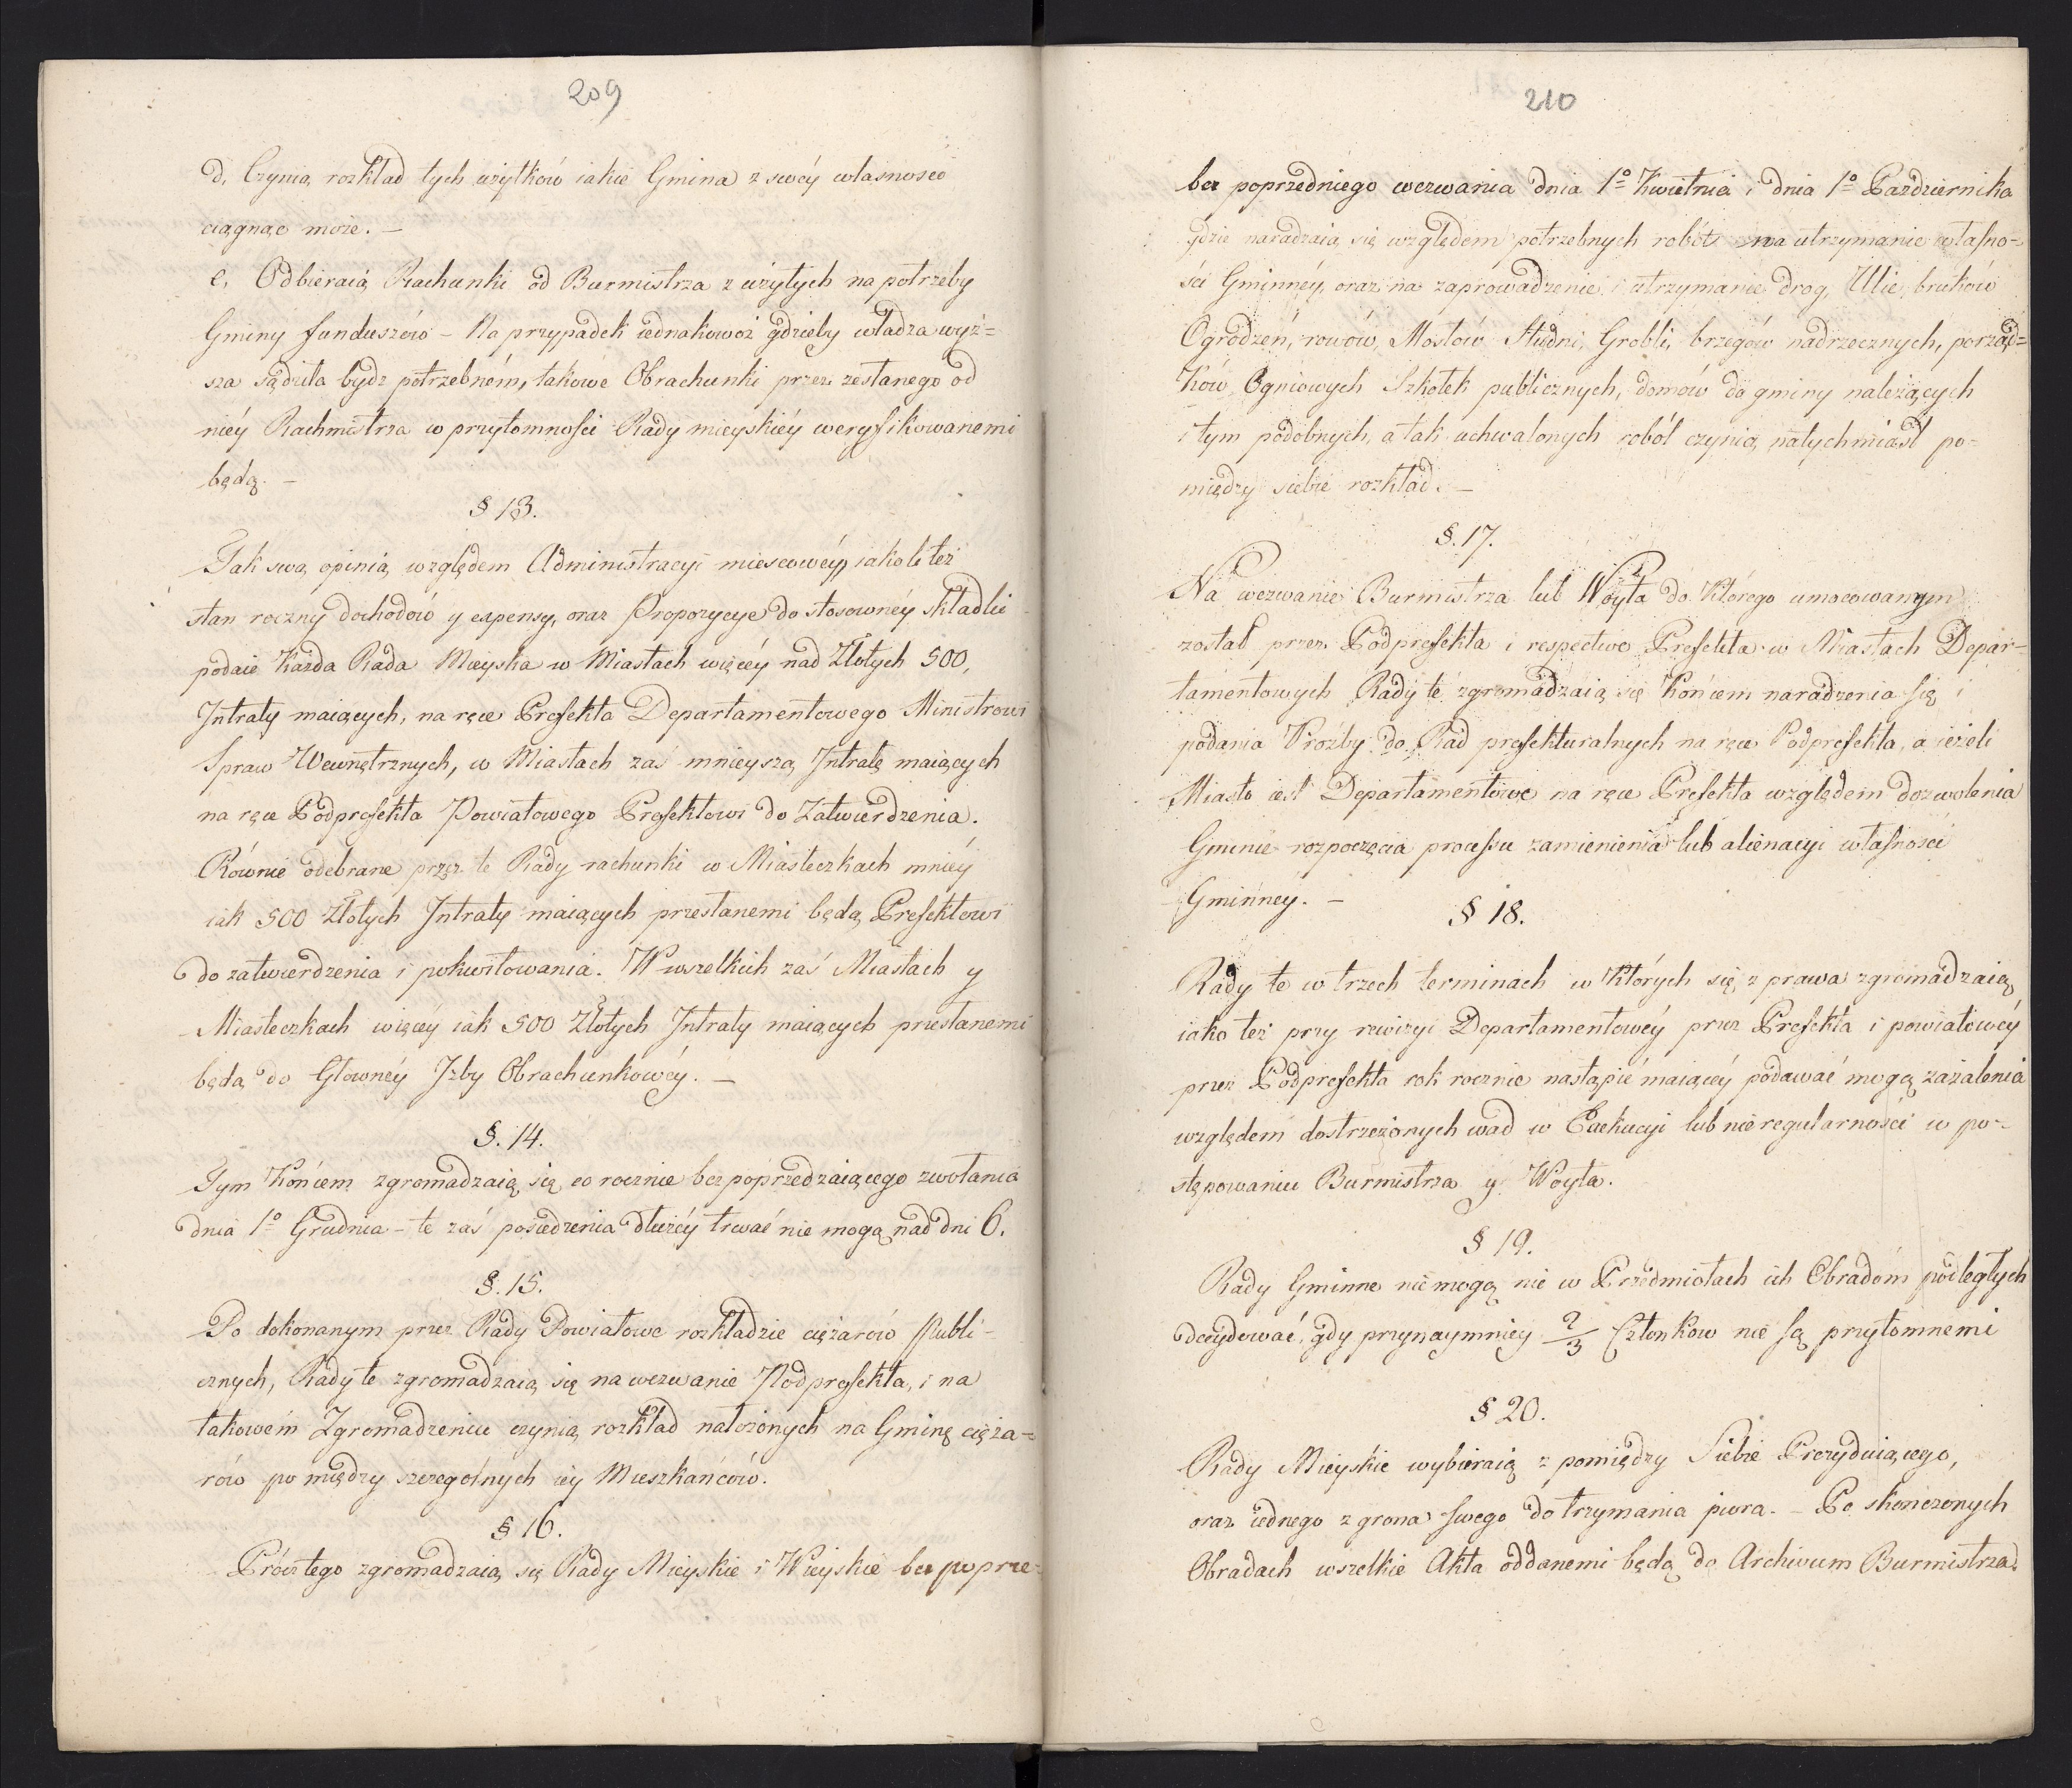 209
d, Czynią rozkład tych użytków iakie Gmina z swéy własnosci
ciągnąć może. —
e, Odbieraią Rachunki od Burmistrza z użytych na potrzeby
Gminy funduszów – Na przypadek iednakowoż gdzieby władza wyż=
sza sądziła bydz potrzebném, takowe Obrachunki przez zesłanego od
niéy Rachmistrza w przytomności Rady mieyskiéy weryfikowanemi
będą. —
§ 13.
Tak swą opinią względem Administracyi miescowéy, iako li też
stan roczny dochodów y expensy, oraz Propozycye do stosownéy składki
podaie Każda Rada Mieyska w Miastach więcéy nad Złotych 500,
Intraty maiących, na ręce Prefekta Departamentowego Ministrowi
Spraw Wewnętrznych, w Miastach zaś mnieyszą Intratę maiących
na ręce Podprefekta Powiatowego Prefektowi do Zatwierdzenia.
Równie odebrane przez te Rady rachunki w Miasteczkach mniéy
iak 500 Złotych Intraty maiących przesłanemi będą Prefektowi
do zatwierdzenia i pokwitowania. W wszelkich zaś Miastach y
Miasteczkach więcéy iak 500 Złotych Intraty maiących przesłanemi
będą do Głównéy Izby Obrachunkowéy. —
§. 14.
Tym Końcem zgromadzaią się co rocznie bez poprzedzaiącego zwołania
dnia 1º Grudnia – te zaś posiedzenia dłużéy trwać nie mogą nad dni 6.
§. 15.
Po dokonanym przez Rady Powiatowe rozkładzie ciężarów Publi-
cznych, Rady te zgromadzaią się na wezwanie Podprefekta, i na
takowém Zgromadzeniu czynią rozkład nałożonych na Gminę cięża=
rów po między szczególnych iéy Mieszkańców.
§ 16.
Prócz tego zgromadzaią się Rady Mieyskie i Wieyskie bez poprze=
210
bez poprzedniego wezwania dnia 1º Kwietnia i dnia 1º Pazdziernika
gdzie naradzaią się względem potrzebnych robót na utrzymanie własno=
ści Gminnéy, oraz na zaprowadzenie i utrzymanie drog, Ulic, bruków
Ogrodzeń, rowów, Mostów Studni, Grobli, brzegów nadrzecznych, porząd=
ków Ogniowych Szkołek publicznych, domów do gminy należących
i tym podobnych, a tak uchwalonych robót czynią natychmiast po=
między siebie rozkład. —
§. 17.
Na wezwanie Burmistrza lub Woyta do Którego umocowanym
został przez Podprefekta i respective Prefekta w Miastach Depar=
tamentowych Rady te zgromadzaią się Końcem naradzenia się i
podania Proźby do Rad prefekturalnych na ręce Podprefekta, a ieżeli
Miasto iest Departamentowe na ręce Prefekta względem dozwolenia
Gminie rozpoczęcia processu zamienienia lub alienacyi własności
Gminnéy. —
§ 18.
Rady te w trzech terminach w Których się z prawa zgromadzaią,
iako też przy rewizyi Departamentowéy przez Prefekta i powiatowéy
przez Podprefekta rok rocznie nastąpić maiącéy podawać mogą zażalenia
względem dostrzeżonych wad w Exekucyi lub nieregularności w po=
stępowaniu Burmistrza y Woyta.
§ 19.
Rady Gminne nie mogą nic w Przedmiotach ich Obradom podległych
decydować, gdy przynaymniey 2/3 Członkow nie są przytomnemi
§ 20.
Rady Mieyskie wybieraią z pomiędzy Siebie Prezyduiącego,
oraz iednego z grona swego do trzymania piora. – Po skończonych
Obradach wszelkie Akta oddanemi będą do Archivum Burmistrza.